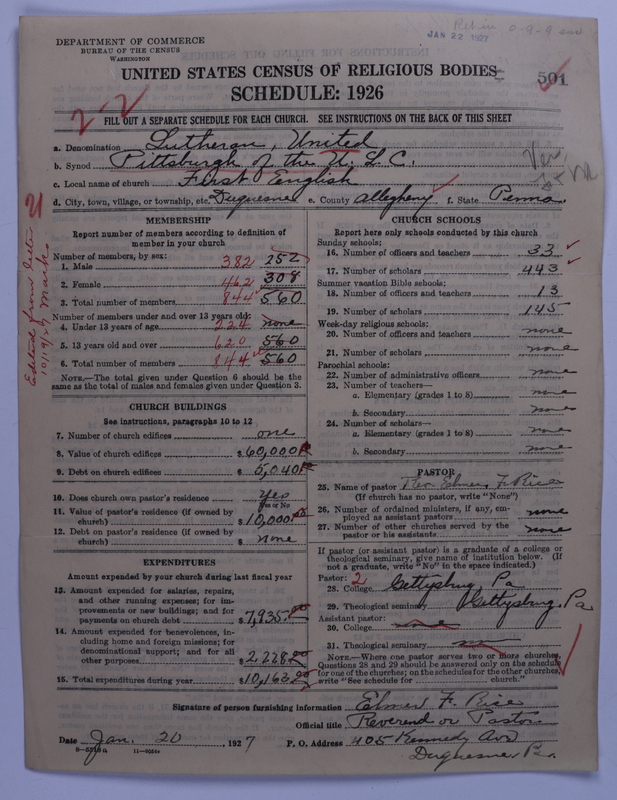 DEPARTMENT OF COMMERCE
BUREAU OF THE CENSUS
WASHINGTON
JAN 22 1927
UNITED STATES CENSUS OF RELIGIOUS BODIES
501
SCHEDULE: 1926
2-2
FILL OUT A SEPARATE SCHEDULE FOR EACH CHURCH. SEE INSTRUCTIONS ON THE BACK OF THIS SHEET
a. Denomination Lutheran, United
b. Synod Pittsburgh of the U. L. C.
c. Local name of church First English
d. City, town, village, or township, etc. Duquesne e. County Allegheny f. State Penna.
MEMBERSHIP
Report number of members according to definition of member in your church
Number of members, by sex:
1. Male 382 252
2. Female 462 308
3. Total number of members 844 560
Number of members under and over 13 years old:
4. Under 13 years of age 224 none
5. 13 years old and over 620 560
6. Total number of members 844 560
NOTE.—The total given under Question 6 should be the
same as the total of males and females given under Question 3.
Edited from letter
10/19/27 Marks
CHURCH BUILDINGS
See instructions, paragraphs 10 to 12
7. Number of church edifices one
8. Value of church edifices $ 60,000
9. Debt on church edifices $ 5,040
10. Does church own pastor's residence Yes
Yes or No
11. Value of pastor's residence (if owned by
church) $ 10,000
12. Debt on pastor's residence (if owned by
church) $ none
EXPENDITURES
Amount expended by your church during last fiscal year
13. Amount expended for salaries, repairs,
and other running expenses; for im-
provements or new buildings; and for
payments on church debt $ 7,935.00
14. Amount expended for benevolences, in-
cluding home and foreign missions; for
denominational support; and for all
other purposes $ 2,228.00
15. Total expenditures during year $ 10,163.00
CHURCH SCHOOLS
Report here only schools conducted by this church
Sunday schools:
16. Number of officers and teachers 33
17. Number of scholars 443
Summer vacation Bible schools:
18. Number of officers and teachers 13
19. Number of scholars 145
Week-day religious schools:
20. Number of officers and teachers none
21. Number of scholars none
Parochial schools:
22. Number of administrative officers none
23. Number of teachers—
a. Elementary (grades 1 to 8) none
b. Secondary none
24. Number of scholars—
a. Elementary (grades 1 to 8) none
b. Secondary none
PASTOR
25. Name of pastor Rev. Elmer F. Rice
(If church has no pastor, write "None")
26. Number of ordained ministers, if any, em-
ployed as assistant pastors none
27. Number of other churches served by the
pastor or his assistants none
If pastor (or assistant pastor) is a graduate of a college or
theological seminary, give name of institution below. (If
not a graduate, write "No" in the space indicated.)
Pastor: 2
28. College Gettysburg, Pa
29. Theological seminary Gettysburg, Pa
Assistant pastor:
30. College none
31. Theological seminary
NOTE.—Where one pastor serves two or more churches,
Questions 28 and 29 should be answered only on the schedule
for one of the churches; on the schedules for the other churches,
write "See schedule for church."
Signature of person furnishing information Elmer F. Rice
Official title Reverend or Pastor
Date Jan. 20, 1927 P. O. Address 405 Kennedy Ave
8-5319a 11-9054 Duquesne Pa.